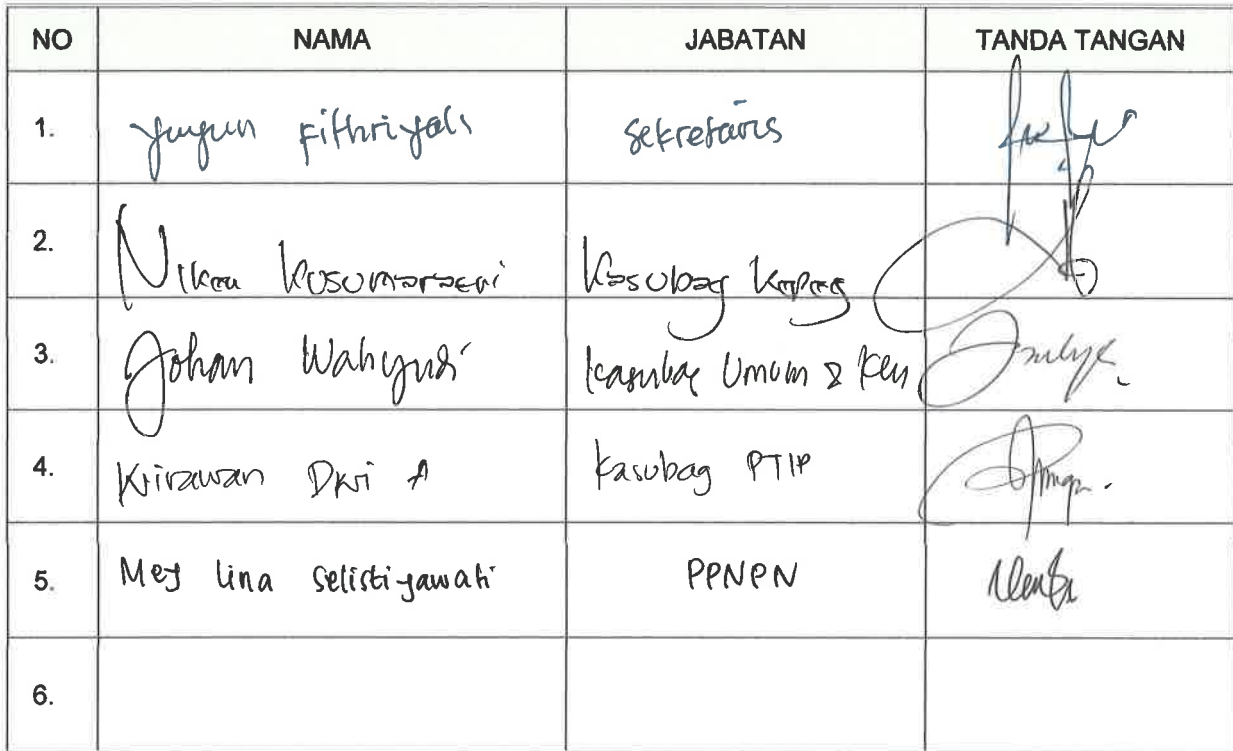 NO NAMA JABATAN TANDA TANGAN
1. Yuyun Fithriyati Sekretaris
2. Niken Kusumarseni Kasubag Kepeg
3. Johan Wahyudi Kasubag Umum & Keu
4. Krirawan Dwi A Kasubag PTIP
5. Mey Lina Selistiyawati PPNPN
6.